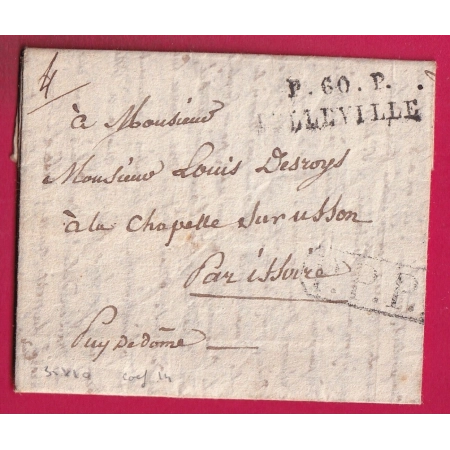 4
P.60.P.
BELLEVILLE
à Monsieur
Monsieur Louis Desroys
à la Chapelle Sur usson
Par issoire
P.P.P.
Puy de dôme